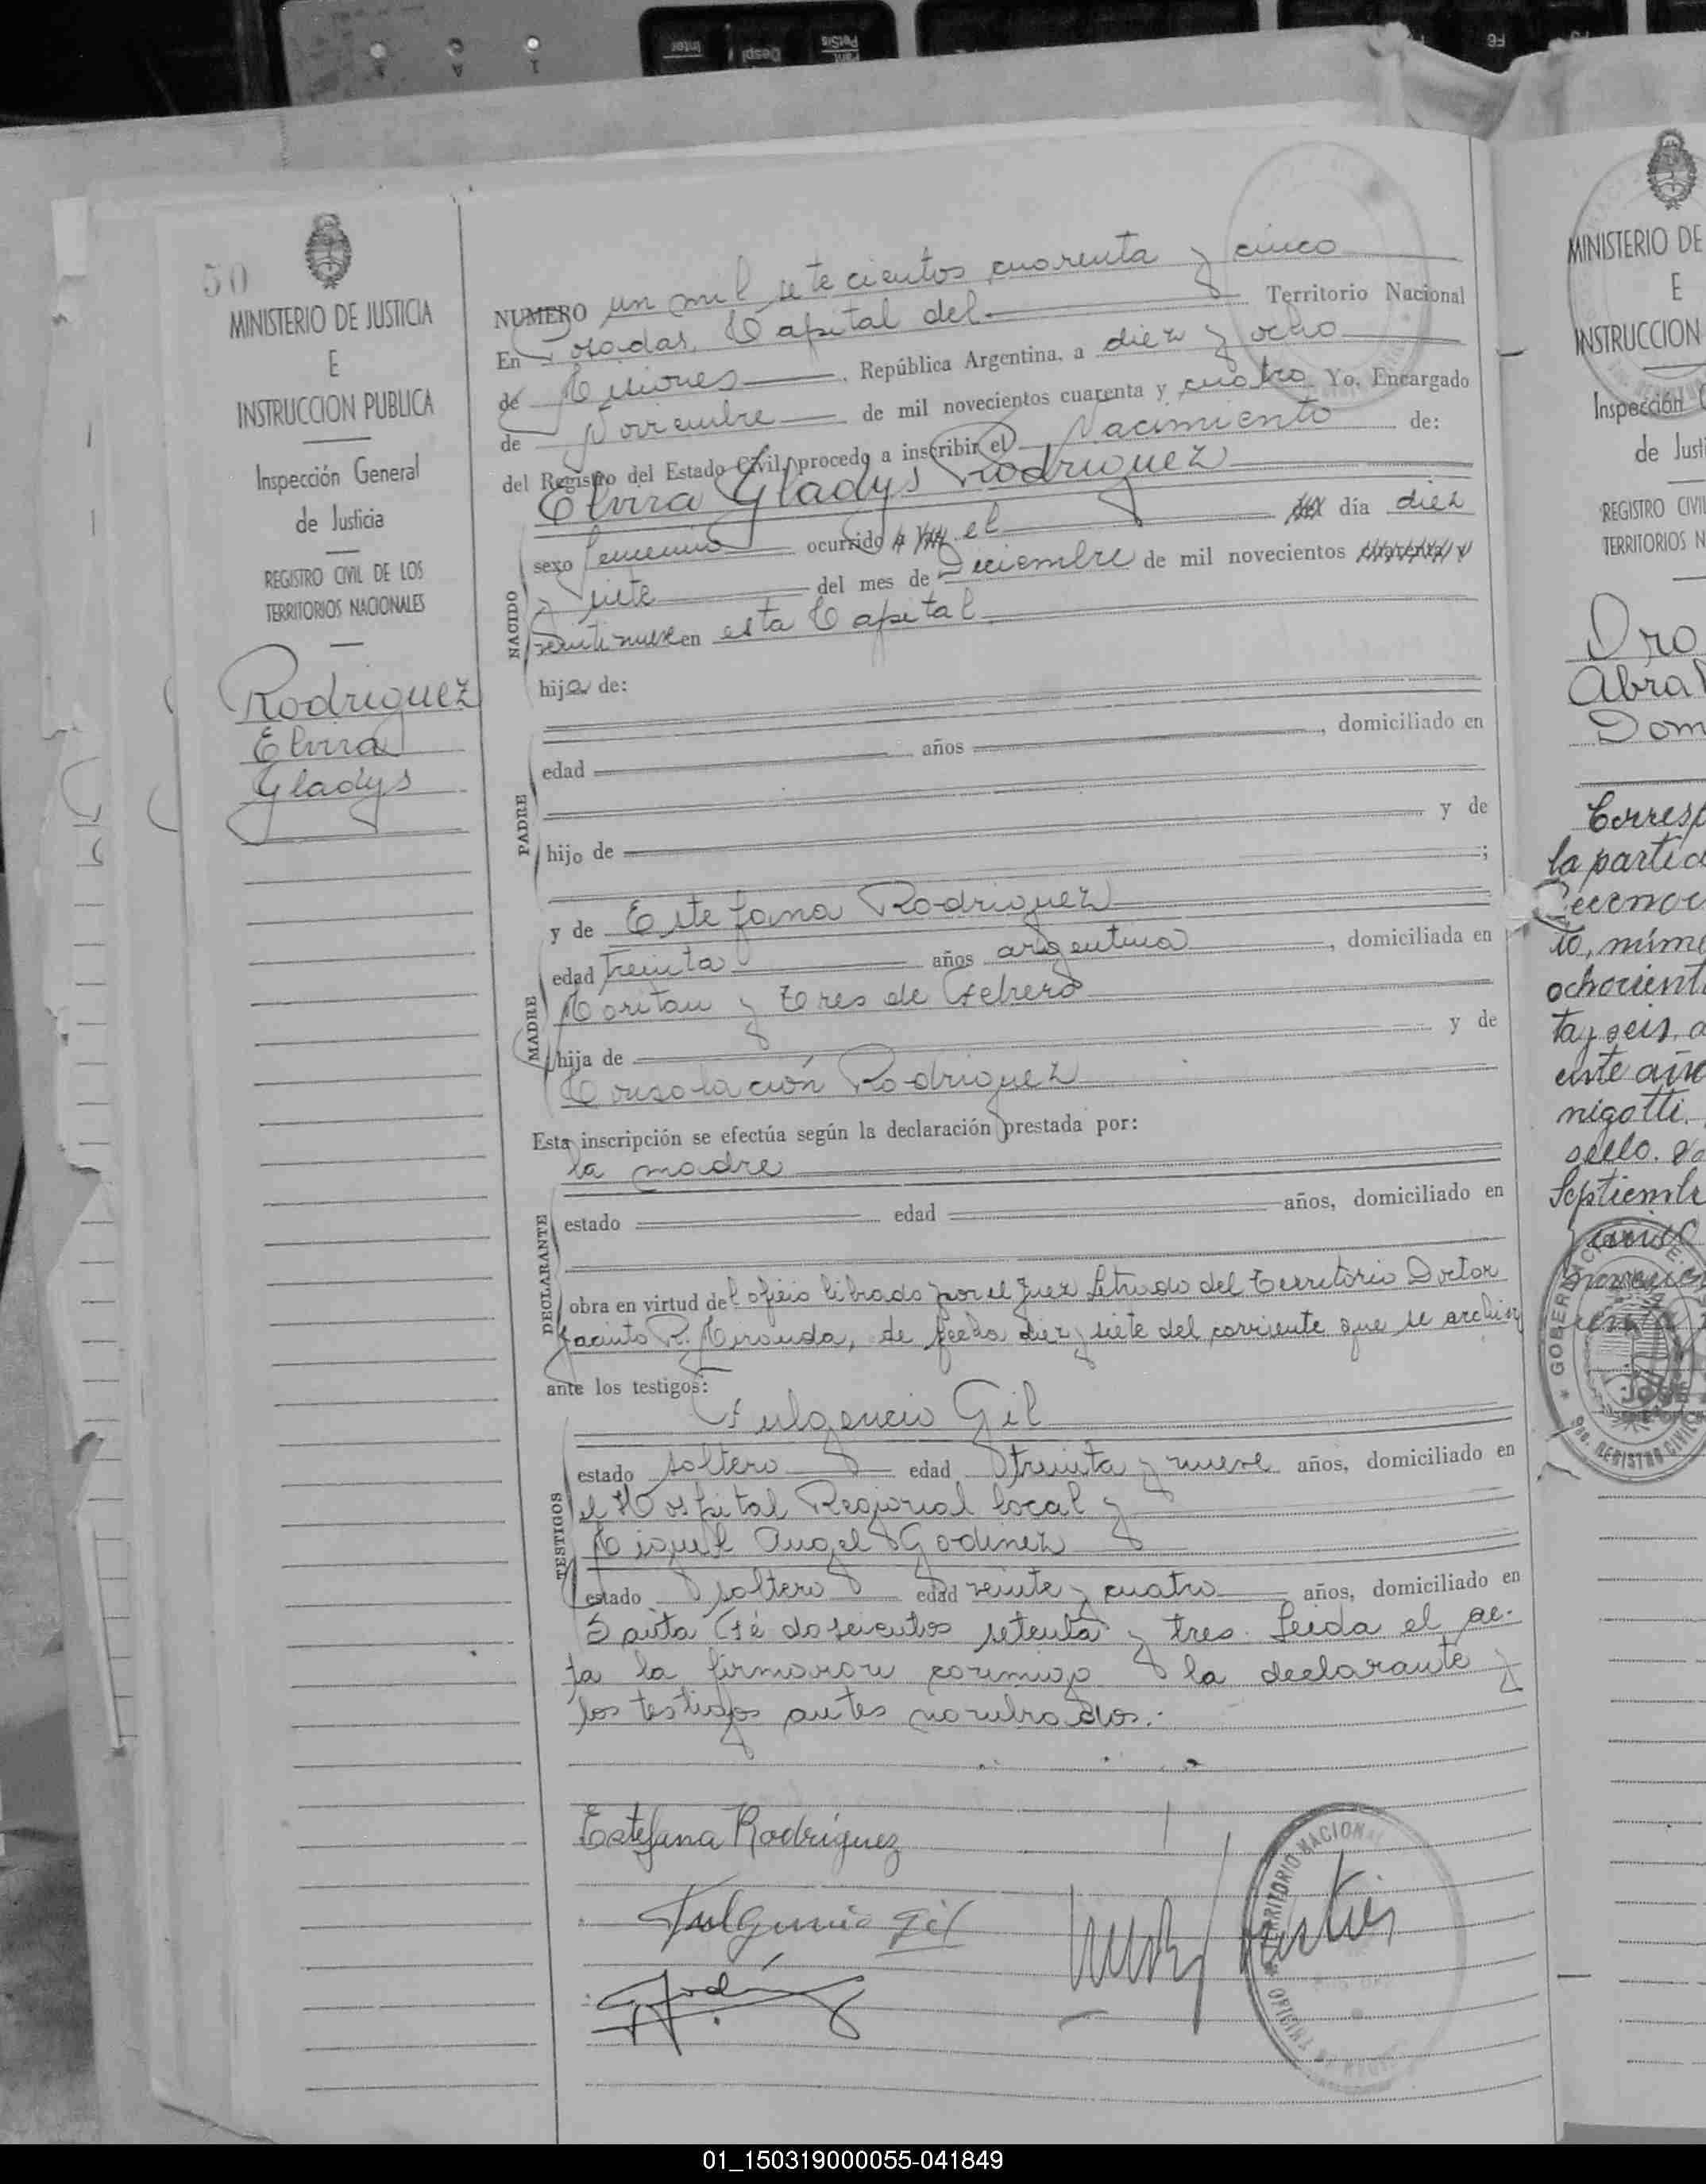 Inter
Despl
Pant
PetSis
F6
1
A
50
MINISTERIO DE JUSTICIA
E
INSTRUCCION PUBLICA
Inspección General
de Justicia
REGISTRO CIVIL DE LOS
TERRITORIOS NACIONALES
Rodriguez
Elvira
Gladys
NUMERO un mil setecientos cuarenta y cinco
En Posadas, Capital del Territorio Nacional
de Misiones, República Argentina, a diez y ocho
de Noviembre de mil novecientos cuarenta y cuatro Yo, Encargado
del Registro del Estado Civil, procedo a inscribir el Nacimiento de:
Elvira Gladys Rodriguez
NACIDO
sexo femenino ocurrido el día diez
y siete del mes de Diciembre de mil novecientos cuarenta y
veintinueve en esta Capital
hija de:
PADRE
edad años, domiciliado en
hijo de y de
;
MADRE
y de Estefana Rodriguez
edad treinta años argentina, domiciliada en
y Tres de Febrero
hija de y de
Consolación Rodriguez
Esta inscripción se efectúa según la declaración prestada por:
la madre
DECLARANTE
estado edad años, domiciliado en
obra en virtud del oficio librado por el Juez Letrado del Territorio Doctor
Jacinto R. Miranda, de fecha diez y siete del corriente que se archiva
ante los testigos:
TESTIGOS
Fulgencio Gil
estado soltero edad treinta y nueve años, domiciliado en
el Hospital Regional local y
Miguel Angel Godinez
estado soltero edad veinte y cuatro años, domiciliado en
Santa Fé doscientos setenta y tres. Leida el ac-
ta la firmaron conmigo la declarante y
los testigos antes nombrados.-
Estefana Rodríguez
Fulgencio Gil
TERRITORIO NACIONAL
MINISTERIO DE
E
INSTRUCCION
Inspección
de Justi
REGISTRO CIVIL
TERRITORIOS N
Oro
Abra
Dom
Corresp
la partid
to, núme
ochocient
ta y seis, d
este año
nigotti.
sello.
Septiembre
GOBERNACION
REGISTRO CIVIL
01_150319000055-041849